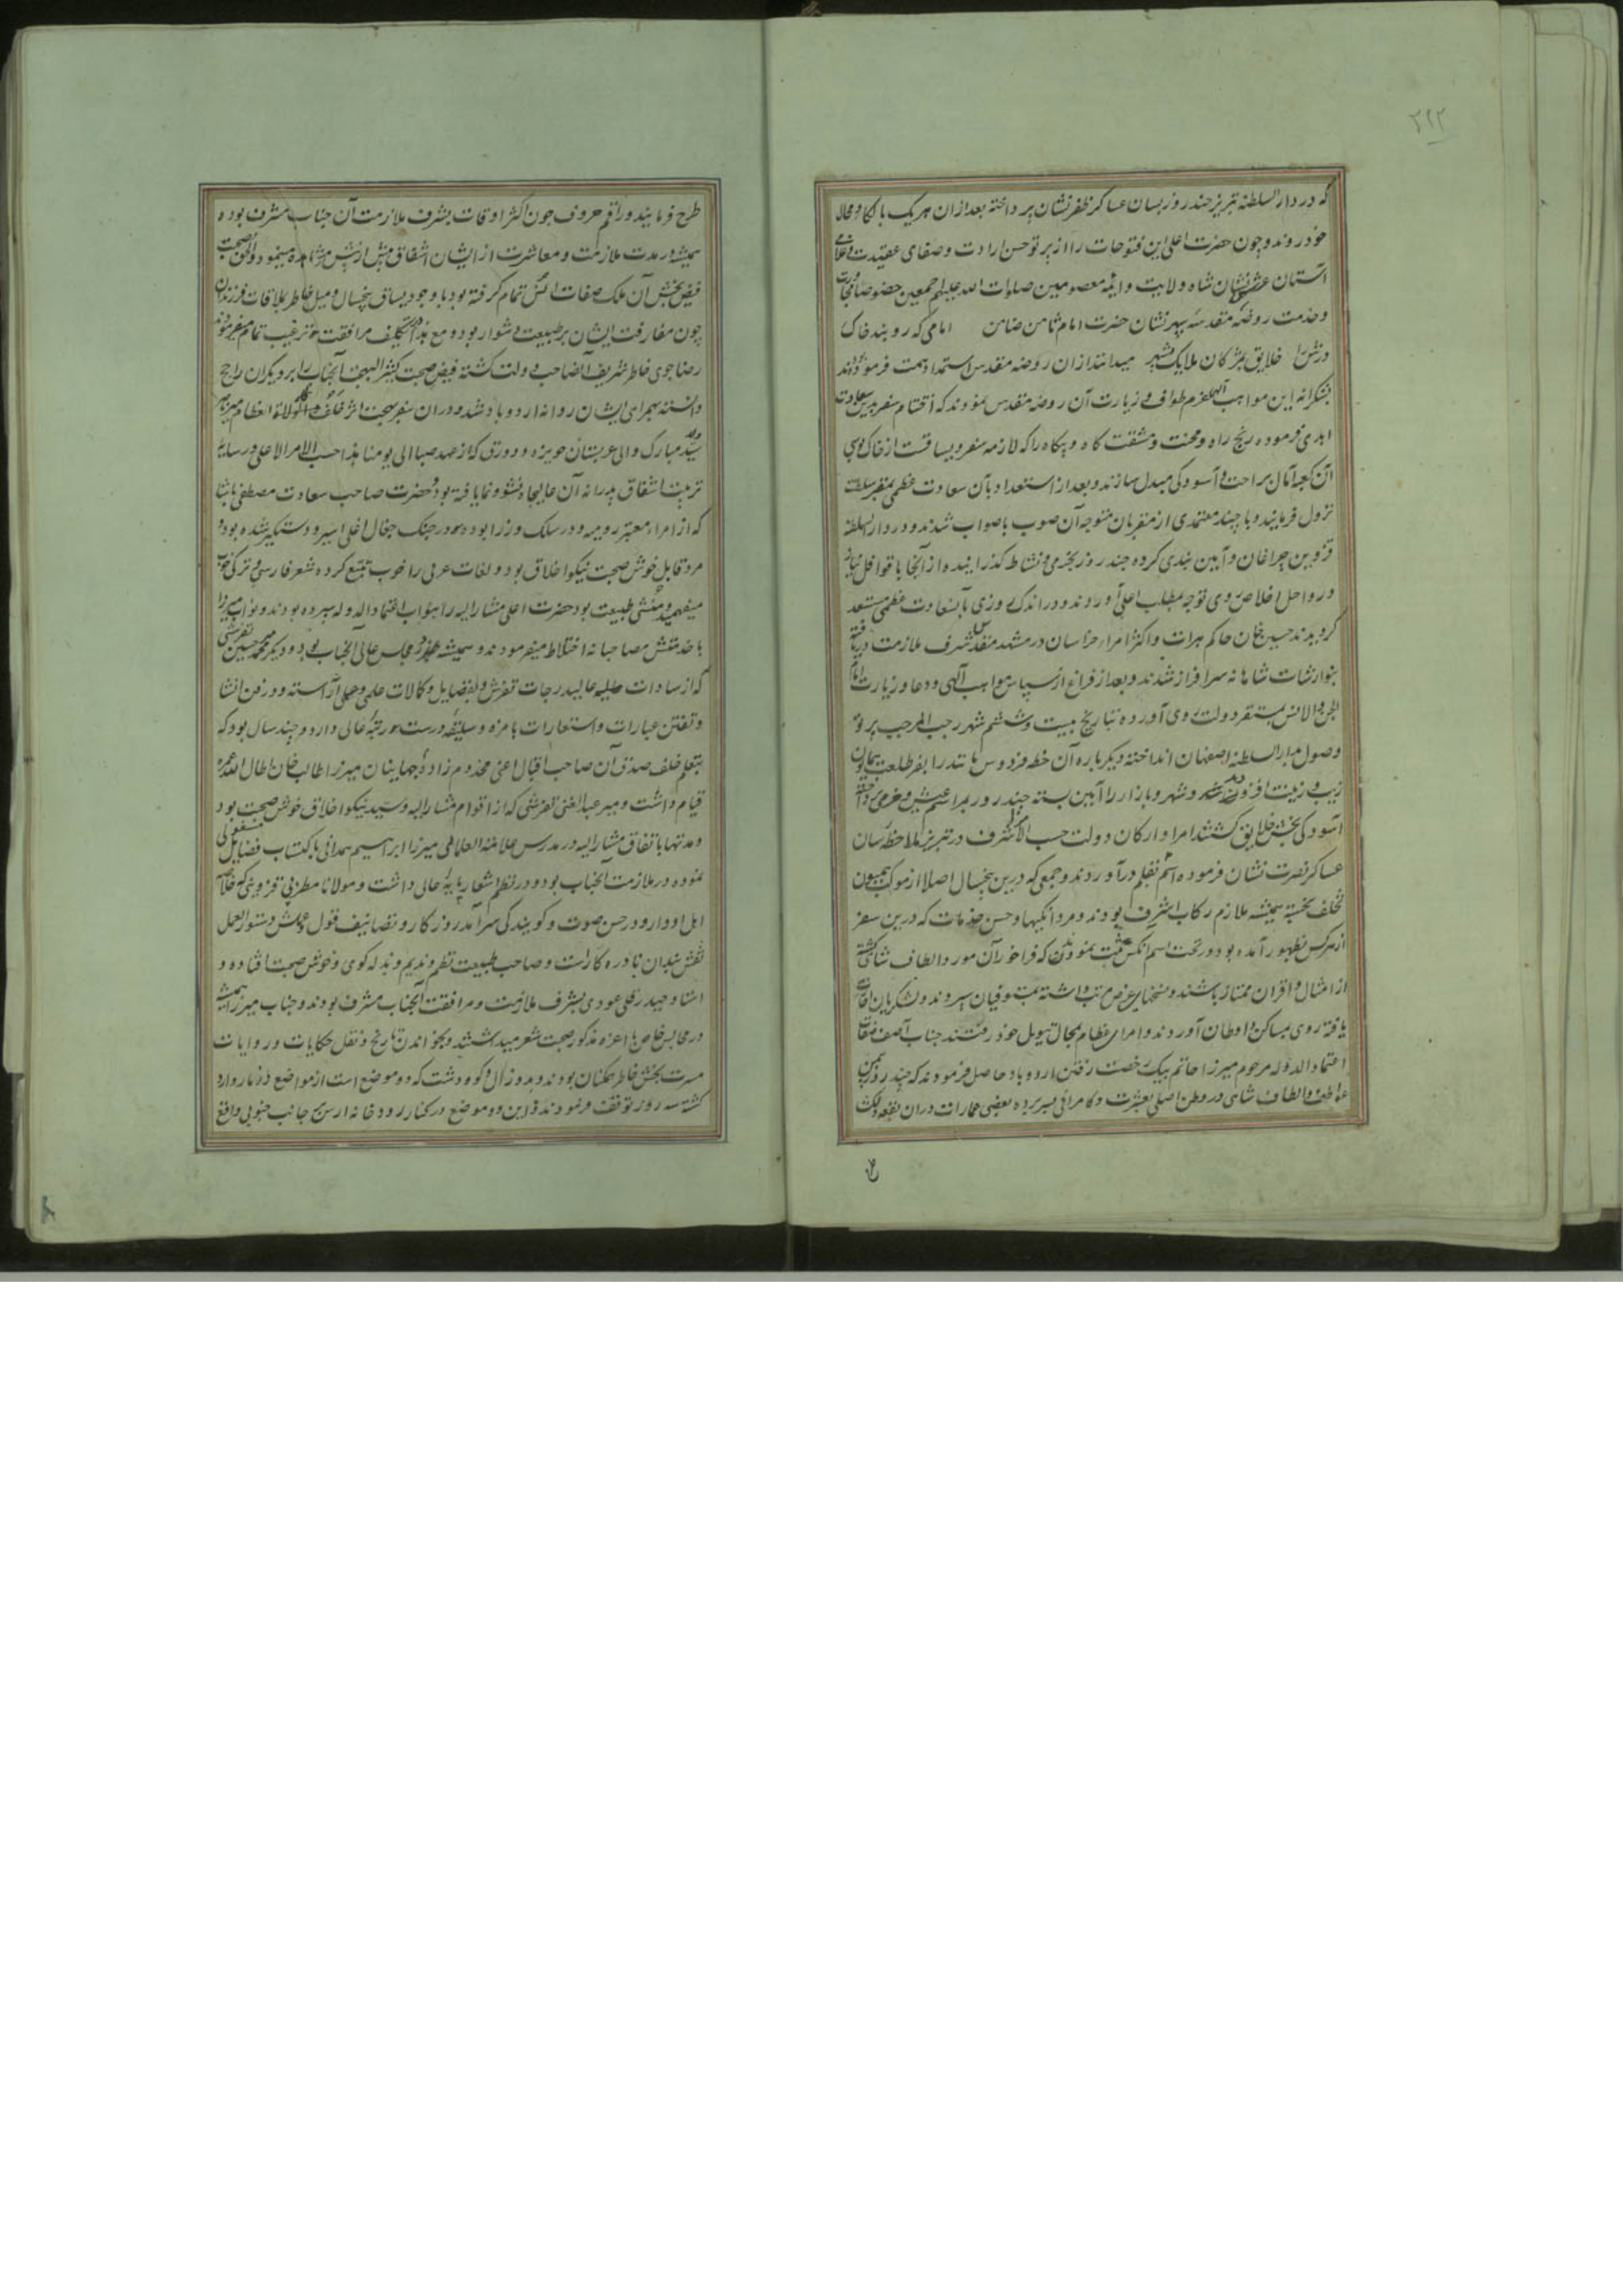 ۲۲۲
که در دار السلطنه تبریز چند روز بسان عساکر ظفر نشان پرداخته بعد از ان هر یک بالکا و محال
خود روند و چون حضرت اعلی این فتوحات را از پرتو حسن ارادت و صفای عقیدت
آستان عرش نشان شاه ولایت و ائمه معصومین صلوات الله علیهم اجمعین خصوصا
و خدمت روضه مقدسه سپهر نشان حضرت امام ثامن ضامن امامی که روبند خاک
درش را خلایق بمژگان ملایک بشهپر میدانند از ان روضه مقدس استمداد همت فرموده بودند
بشکرانه این مواهب الهی عزم طواف و زیارت آن روضه مقدس نمودند که اختتام سفر بدین سعادت
ابدی فرموده رنج راه و محنت و مشقت کاه و بیکاه را که لازمه سفر و یساقست از خاک بوسی
آن کعبه آمال براحت و آسودگی مبدل سازند و بعد از استعداد بآن سعادت عظمی بمقر سلطنت
نزول فرمایند و با چند معتمدی از مقربان متوجه آن صوب با صواب شدند و در دار السلطنه
قزوین چراغان و آیین بندی کرده چند روز بخرمی و نشاط گذرانیده از آنجا با قوافل نیاز
و رواحل اخلاص روی توجه بمطلب اعلی آوردند و در اندک روزی بآن سعادت عظمی مستعد
گردیدند حسین خان حاکم هرات و اکثر امراء خراسان در مشهد مقدس شرف ملازمت دریافته
بنوازشات شاهانه سرافراز شدند و بعد از فراغ از سپاس مواهب الهی و دعا و زیارت امام
الجن و الانس بمستقر دولت روی آورده بتاریخ بیست و ششم شهر رجب المرجب پرتو
وصول بدار السلطنه اصفهان انداخته دیگر باره آن خطه فردوس مانند را بفر طلعت همایون
زیب و زینت افزودند و شهر و بازار را آیین بسته چند روز بمراسم عیش و خرمی پرداخته
آسودگی بخش خلایق گشتند امرا و ارکان دولت حسب الامر اشرف در تبریز ملاحظه سان
عساکر نصرت نشان فرموده اسم بقلم درآوردند و جمعی که درین پنجسال اصلا از موکب همیون
تخلف نجسته همیشه ملازم رکاب اشرف بودند و مردانگیها و حسن خدمات که درین سفر
از هر کس بظهور آمده بود در تحت اسم آنکس ثبت نمودند که فراخور آن مورد الطاف شاهی گشته
از امثال و اقران ممتاز باشند و نسخهای عرض ترتیب داشته بمستوفیان سپردند و لشکریان اجازت
یافته روی بمساکن و اوطان آوردند و امرای عظام بمحال تیول خود رفتند جناب آصف صفات
اعتماد الدوله مرحوم میرزا حاتم بیک رخصت رفتن اردوباد حاصل فرمودند که چند روز بیمن
عواطف و الطاف شاهی در وطن اصلی بعشرت و کامرانی بسر برده بعضی عمارات در ان بقعه دلکش
طرح فرمایند و راقم حروف چون اکثر اوقات بشرف ملازمت آن جناب مشرف بوده
همیشه در مدت ملازمت و معاشرت از ایشان اشفاق بیش از پیش مشاهده مینمود و
فیض بخش آن ملک صفات انس تمام گرفته بود با وجود یساق پنجسال و میل خاطر بملاقات فرزندان
چون مفارقت ایشان بر طبیعت دشوار بود و مع هذا تکلیف مرافقت و ترغیب تمام میفرمودند
رضاجوی خاطر شریف آنصاحب دولت گشته فیض صحبت کثیر البهجت آنجناب را بر دیگران راجح
دانسته بهمراهی ایشان روانه اردوباد شد و در ان سفر بهجت اثر خلف
سید مبارک والی عربستان حویزه و دورق که از عهد صبا الی یومنا هذا حسب الامر الاعلی در سایه
تربیت اشفاق پدرانه آن عالیجاه نشو و نما یافته بود و حضرت صاحب سعادت مصطفی پاشا
که از امراء معتبر رومیه و در سلک وزرا بوده و در جنگ جغال اغلی اسیر و دستگیر شده بود و
مرد قابل خوش صحبت نیکو اخلاق بود و لغات عربی را خوب تتبع کرده شعر فارسی و ترکی خوب
میفهمید و منشی طبیعت بود حضرت اعلی مشار الیه را بنواب اعتماد الدوله سپرده بودند و نواب میرزا
با خدمتش مصاحبانه اختلاط میفرمودند و همیشه در مجلس عالی آنجناب بود و دیگر میر محمد حسین تفرشی
که از سادات جلیه عالیدرجات تفرش و بفضایل و کمالات علمی و عملی آراسته و در فن انشا
و تفنن عبارات و استعارات با مزه و سلیقه درست مرتبه عالی دارد و چند سال بود که
بتعلیم خلف صدق آن صاحب اقبال اعنی مخدوم زاده جهانیان میرزا طالب خان اطال الله عمره
قیام داشت و میر عبد الغنی تفرشی که از اقوام مشار الیه و سید نیکو اخلاق خوش صحبت بود
و مدتها باتفاق مشار الیه در مدرس علامة العلمائی میرزا ابراهیم همدانی باکتساب فضایل مشغولی
نموده در ملازمت آنجناب بود و در نظم اشعار پایه عالی داشت و مولانا مطربی قزوینی که
اهل ادوار و در حسن صوت و گویندگی سرآمد روزگار و تصانیف قول و عملش دستور العمل
نقش بندان نادره کارست و صاحب طبیعت نظم و ندیم و بذله گوی و خوش صحبت افتاده و
استاد حیدر قلی عودی بشرف ملازمت و مرافقت آنجناب مشرف بودند و جناب میرزا همیشه
در مجالس خاص با اعزه مذکور صحبت شعر میداشتند و بخواندن تاریخ و نقل حکایات و روایات
مسرت بخش خاطر همگنان بودند و بدوزال و کوردشت که دو موضع است از مواضع دزمار وارد
گشته سه روز توقف فرمودند و این دو موضع در کنار رودخانه ارس بجانب جنوبی واقع